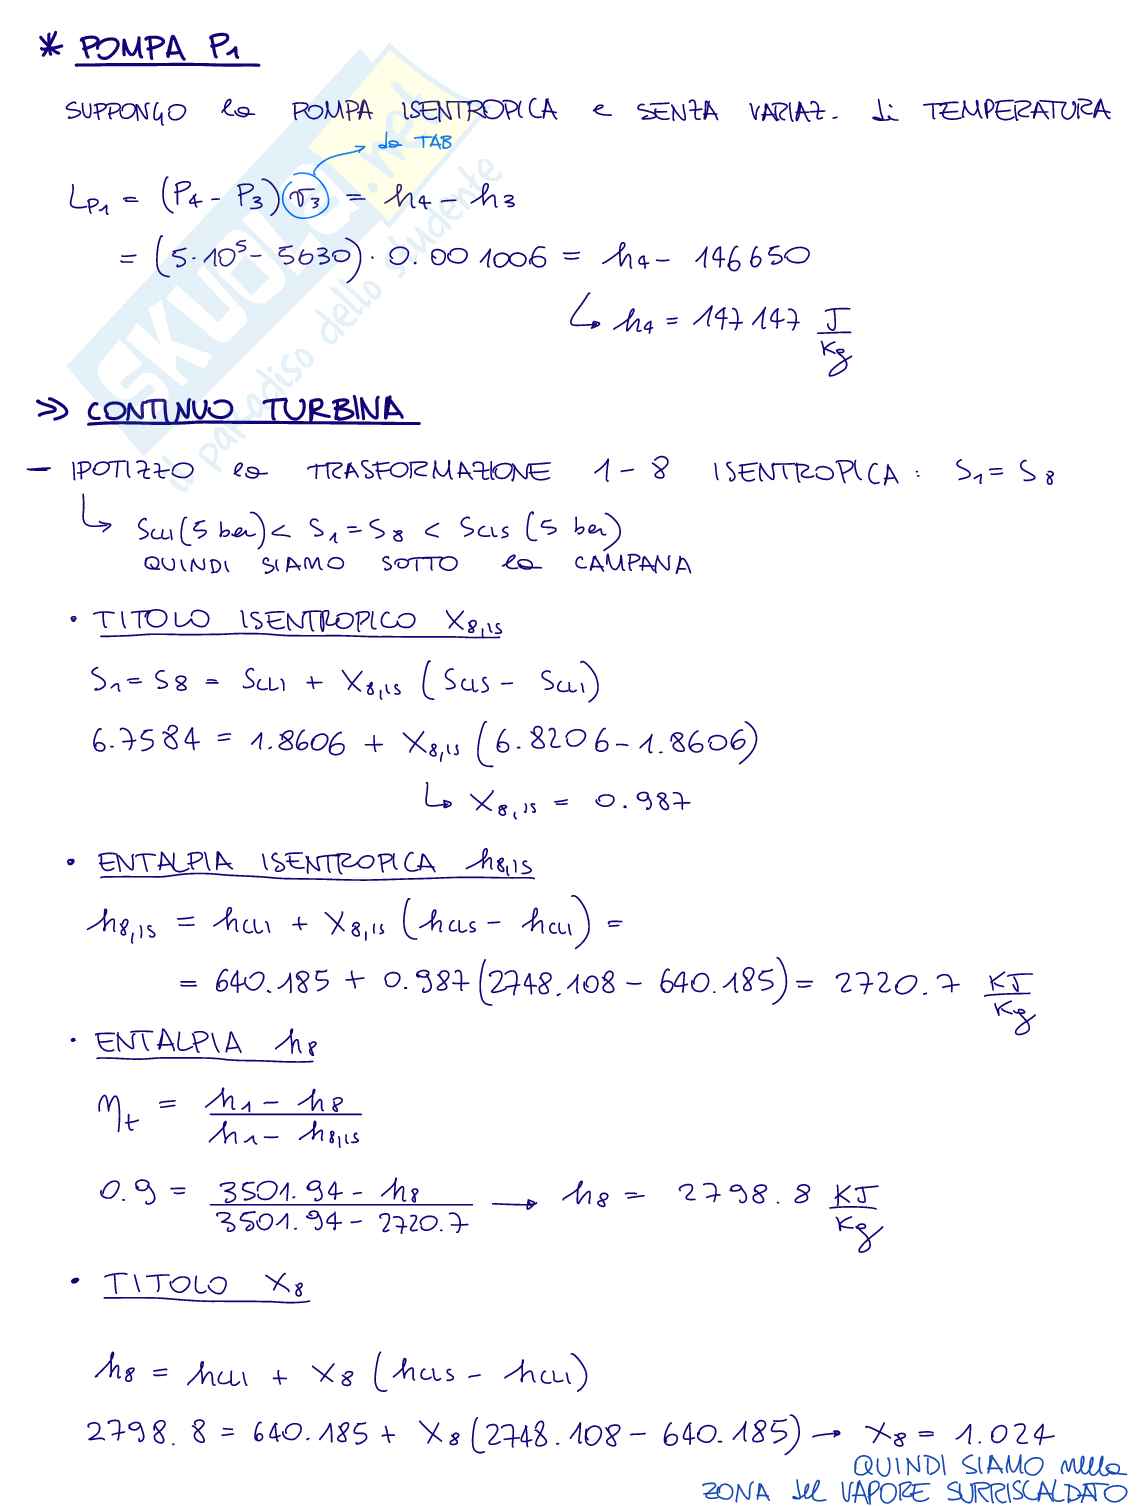 * POMPA P1
SUPPONGO la POMPA ISENTROPICA e SENZA VARIAZ. di TEMPERATURA
da TAB
LP1 = (P4 - P3) v3 = h4 - h3
= (5·10^5 - 5630) · 0.001006 = h4 - 146650
↳ h4 = 147147 J/Kg
>> CONTINUO TURBINA
- IPOTIZZO la TRASFORMAZIONE 1-8 ISENTROPICA: S1 = S8
↳ Scli (5 bar) < S1 = S8 < Scls (5 bar)
QUINDI SIAMO SOTTO la CAMPANA
• TITOLO ISENTROPICO X8,is
S1 = S8 = Scli + X8,is (Scls - Scli)
6.7584 = 1.8606 + X8,is (6.8206 - 1.8606)
↳ X8,is = 0.987
• ENTALPIA ISENTROPICA h8,is
h8,is = hcli + X8,is (hcls - hcli) =
= 640.185 + 0.987 (2748.108 - 640.185) = 2720.7 KJ/Kg
• ENTALPIA h8
ηt = (h1 - h8) / (h1 - h8,is)
0.9 = (3501.94 - h8) / (3501.94 - 2720.7) → h8 = 2798.8 KJ/Kg
• TITOLO X8
h8 = hcli + X8 (hcls - hcli)
2798.8 = 640.185 + X8 (2748.108 - 640.185) → X8 = 1.024
QUINDI SIAMO nella
ZONA del VAPORE SURRISCALDATO
SKUOLA.net
il paradiso dello studente